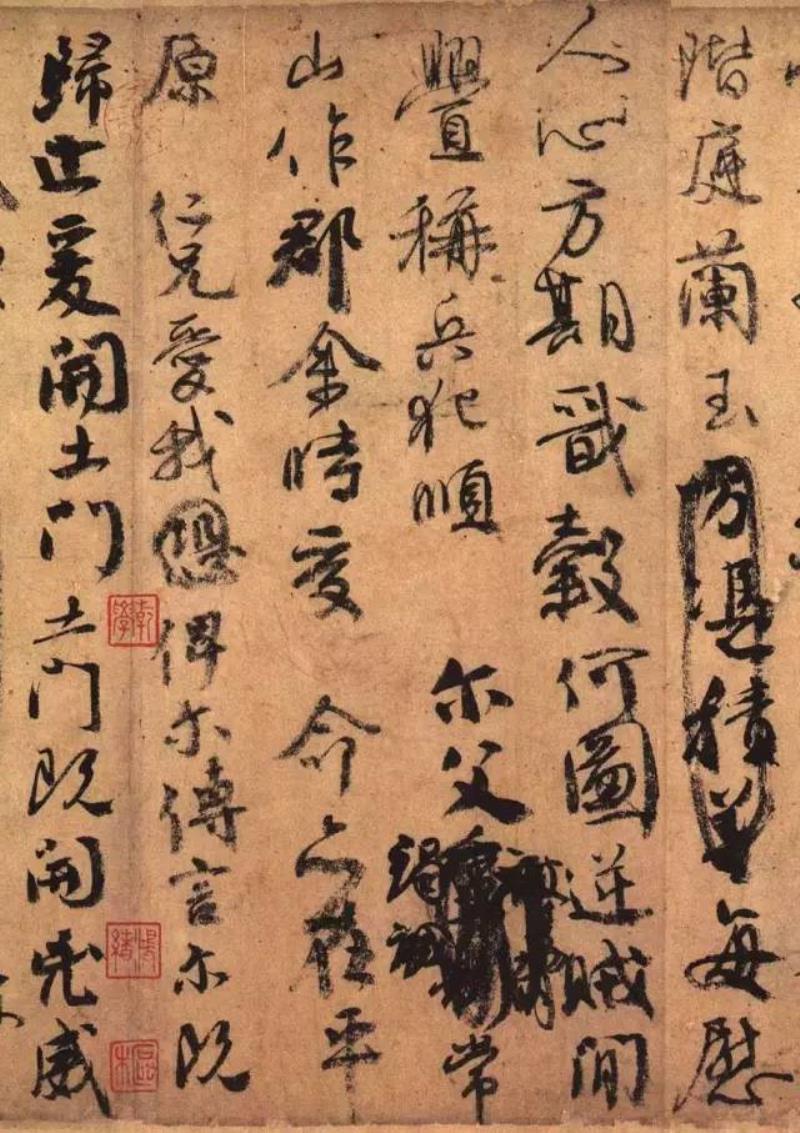 階庭蘭玉方憑積善每慰
人心方期戩穀何圖逆賊閒
舋稱兵犯順 尒父竭誠常
山作郡余時受 命亦在平
原 仁兄愛我恐俾尒傳言尒既
歸止爰開土門土門既開凶威